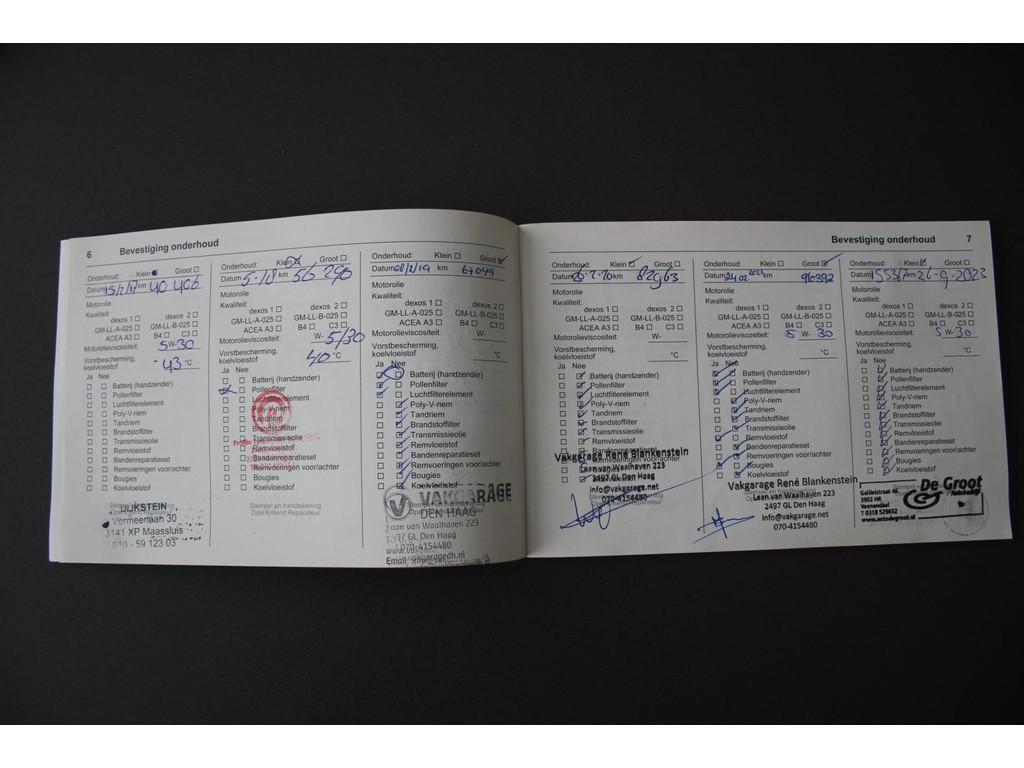 6 Bevestiging onderhoud
Onderhoud: Klein Groot
Datum 15/2/17 km 40 406
Motorolie
Kwaliteit:
dexos 1 dexos 2
GM-LL-A-025 GM-LL-B-025
ACEA A3 B4 C3
Motorolieviscositeit: 5 W- 30
Vorstbescherming,
koelvloeistof - 43 °C
Ja Nee
Batterij (handzender)
Pollenfilter
Luchtfilterelement
Poly-V-riem
Tandriem
Brandstoffilter
Transmissieolie
Remvloeistof
Bandenreparatieset
Remvoeringen voor/achter
Bougies
Koelvloeistof
DIJKSTEIN
Vermeerlaan 30
3141 XP Maassluis
010 - 59 123 03
Onderhoud: Klein Groot
Datum 5-18 km 56 290
Motorolie
Kwaliteit:
dexos 1 dexos 2
GM-LL-A-025 GM-LL-B-025
ACEA A3 B4 C3
Motorolieviscositeit: W- 5/30
Vorstbescherming,
koelvloeistof 40 °C
Ja Nee
Batterij (handzender)
Pollenfilter
Luchtfilterelement
Poly-V-riem
Tandriem
Brandstoffilter
Transmissieolie
Remvloeistof
Bandenreparatieset
Remvoeringen voor/achter
Bougies
Koelvloeistof
Stempel en handtekening
Opel Erkend Reparateur
Onderhoud: Klein Groot
Datum 08/2/19 km 67049
Motorolie
Kwaliteit:
dexos 1 dexos 2
GM-LL-A-025 GM-LL-B-025
ACEA A3 B4 C3
Motorolieviscositeit: W-
Vorstbescherming,
koelvloeistof °C
Ja Nee
Batterij (handzender)
Pollenfilter
Luchtfilterelement
Poly-V-riem
Tandriem
Brandstoffilter
Transmissieolie
Remvloeistof
Bandenreparatieset
Remvoeringen voor/achter
Bougies
Koelvloeistof
VAKGARAGE
DEN HAAG
Laan van Waalhaven 223
2497 GL Den Haag
070-4154480
www.vakgaragedh.nl
Email: info@vakgaragedh.nl
Bevestiging onderhoud 7
Onderhoud: Klein Groot
Datum km
Motorolie
Kwaliteit:
dexos 1 dexos 2
GM-LL-A-025 GM-LL-B-025
ACEA A3 B4 C3
Motorolieviscositeit: W-
Vorstbescherming,
koelvloeistof °C
Ja Nee
Batterij (handzender)
Pollenfilter
Luchtfilterelement
Poly-V-riem
Tandriem
Brandstoffilter
Transmissieolie
Remvloeistof
Vakgarage René Blankenstein
Laan van Waalhaven 223
2497 GL Den Haag
info@vakgarage.net
070-4154480
Onderhoud: Klein Groot
Datum 24 02 2021 km 96392
Motorolie
Kwaliteit:
dexos 1 dexos 2
GM-LL-A-025 GM-LL-B-025
ACEA A3 B4 C3
Motorolieviscositeit: 5 W- 30
Vorstbescherming,
koelvloeistof °C
Ja Nee
Batterij (handzender)
Pollenfilter
Luchtfilterelement
Poly-V-riem
Tandriem
Brandstoffilter
Transmissieolie
Remvloeistof
Bandenreparatieset
Remvoeringen voor/achter
Bougies
Koelvloeistof
Vakgarage René Blankenstein
Laan van Waalhaven 223
2497 GL Den Haag
Info@vakgarage.net
070-4154480
Onderhoud: Klein Groot
26-9-2023
Motorolie
Kwaliteit:
dexos 1 dexos 2
GM-LL-A-025 GM-LL-B-025
ACEA A3 B4 C3
Motorolieviscositeit: 5 W- 30
Vorstbescherming,
koelvloeistof °C
Ja Nee
Batterij (handzender)
Pollenfilter
Luchtfilterelement
Poly-V-riem
Tandriem
Brandstoffilter
Transmissieolie
Remvloeistof
Bandenreparatieset
Remvoeringen voor/achter
Bougies
Koelvloeistof
De Groot
Galileistraat 46
3902 HR
Veenendaal
T 0318 529652
www.autodegroot.nl